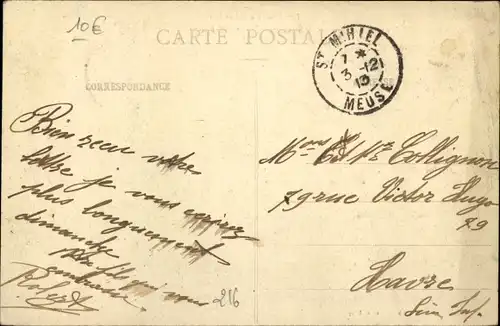 10€
CARTE POSTALE
CORRESPONDANCE
ST MIHIEL
7 *
3 -12
13
MEUSE
Bien reçu votre
lettre je vous
plus longuement
dimanche
fils qui vous
embrasse
Robert
216
Collignon
79 rue Victor Hugo
79
Havre
Sein Inf.